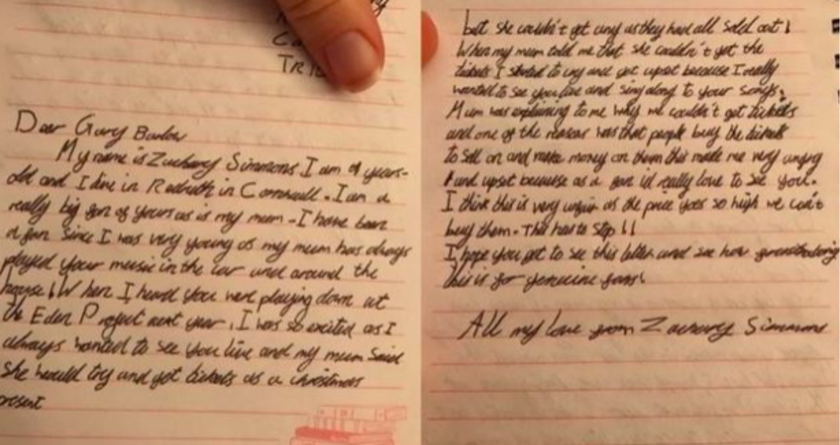 TR1
Dear Gary Barlow
My name is Zachary Simmons I am 9 years-
old and I live in Redruth in Cornwall. I am a
really big fan of yours as is my mum. I have been
a fan since I was very young as my mum has always
played your music in the car and around the
house! When I heard you were playing down at
the Eden Project next year, I was so excited as I
always wanted to see you live and my mum said
she would try and get tickets as a christmas
present
but she couldn't get any as they had all sold out!
When my mum told me that she couldn't get the
tickets I started to cry and got upset because I really
wanted to see you live and sing along to your songs.
Mum was explaining to me why we couldn't get tickets
and one of the reasons was that people buy the tickets
to sell on and make money on them this made me very angry
and upset because as a fan id really love to see you.
I think this is very unfair as the price goes so high we can't
buy them. This has to stop!!
I hope you get to see this letter and see how
this is for genuine fans!
All my love from Zachary Simmons